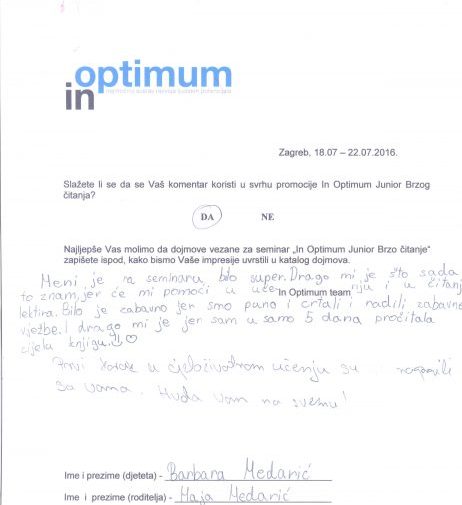 optimum
in
Zagreb, 18.07 – 22.07.2016.
Slažete li se da se Vaš komentar koristi u svrhu promocije In Optimum Junior Brzog
čitanja?
DA NE
Najljepše Vas molimo da dojmove vezane za seminar „In Optimum Junior Brzo čitanje“
zapišete ispod, kako bismo Vaše impresije uvrstili u katalog dojmova.
Meni je na seminaru bilo super. Drago mi je što sada
to znam, jer će mi pomoći u učenju i u čitanju
In Optimum team
lektira. Bilo je zabavno jer smo puno i crtali i radili zabavne
vježbe. I drago mi je jer sam u samo 5 dana pročitala
cijelu knjigu.
Prvi korak u cjeloživotnom učenju smo napravili
sa vama. Hvala vam na svemu!
Ime i prezime (djeteta) - Barbara Medarić
Ime i prezime (roditelja) - Maja Medarić